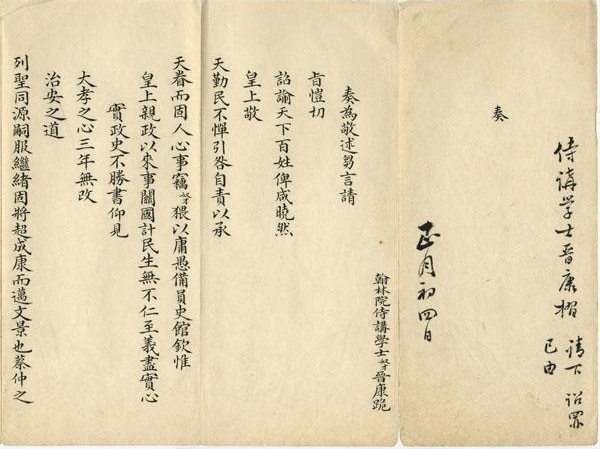 侍講学士晉康摺
請下 詔罪
已由
奏
正月初四日
翰林院侍講學士奴才晉康跪
奏為敬述芻言請
旨愷切
詔諭天下百姓俾咸曉然
皇上敬
天勤民不憚引咎自責以承
天眷而固人心事竊奴才猥以庸愚備員史館欽惟
皇上親政以來事關國計民生無不仁至義盡實心
實政史不勝書仰見
大孝之心三年無改
治安之道
列聖同源嗣服繼緒因將超成康而邁文景也蔡仲之